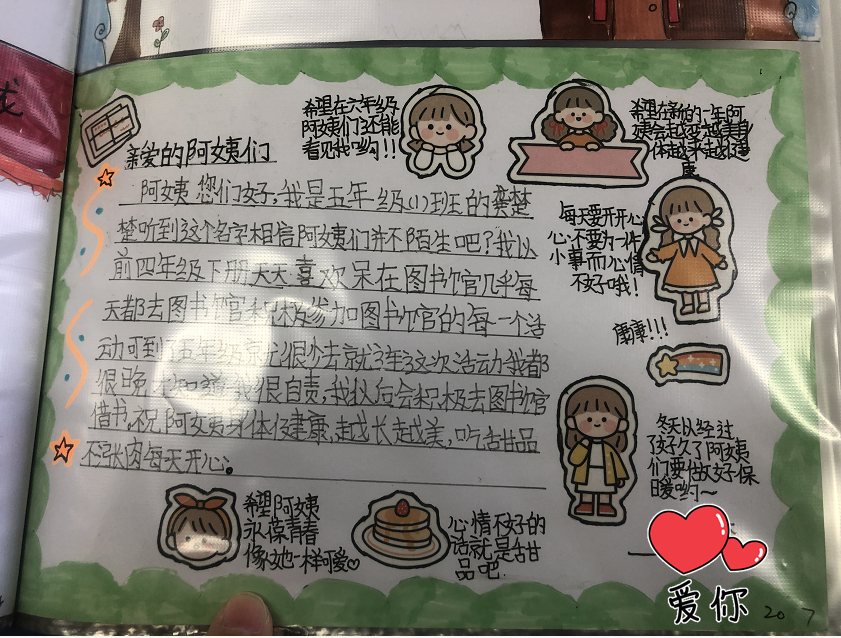 亲爱的阿姨们
阿姨您们好,我是五年级(1)班的龚楚
楚听到这个名字相信阿姨们并不陌生吧?我以
前四年级下册天天喜欢呆在图书馆几乎每
天都去图书馆积极参加图书馆的每一个活
动可到了五年级就很少去就连这次活动我都
很晚才知道我很自责,我以后会积极去图书馆
借书,祝阿姨身体健康,越长越美,吃甜品
不张肉每天开心。
希望在六年级
阿姨们还能
看见我哟!!
希望在新的一年阿
姨会越变越美身
体越来越健
康
每天要开开心
心不要为一件
小事而心情
不好哦!
康康!!!
冬天以经过
了好久了阿姨
们要做好好保
暖哟~
希望阿姨
永葆青春
像她一样可爱♡
心情不好的
话就是甜
品吧.
爱你
20 7